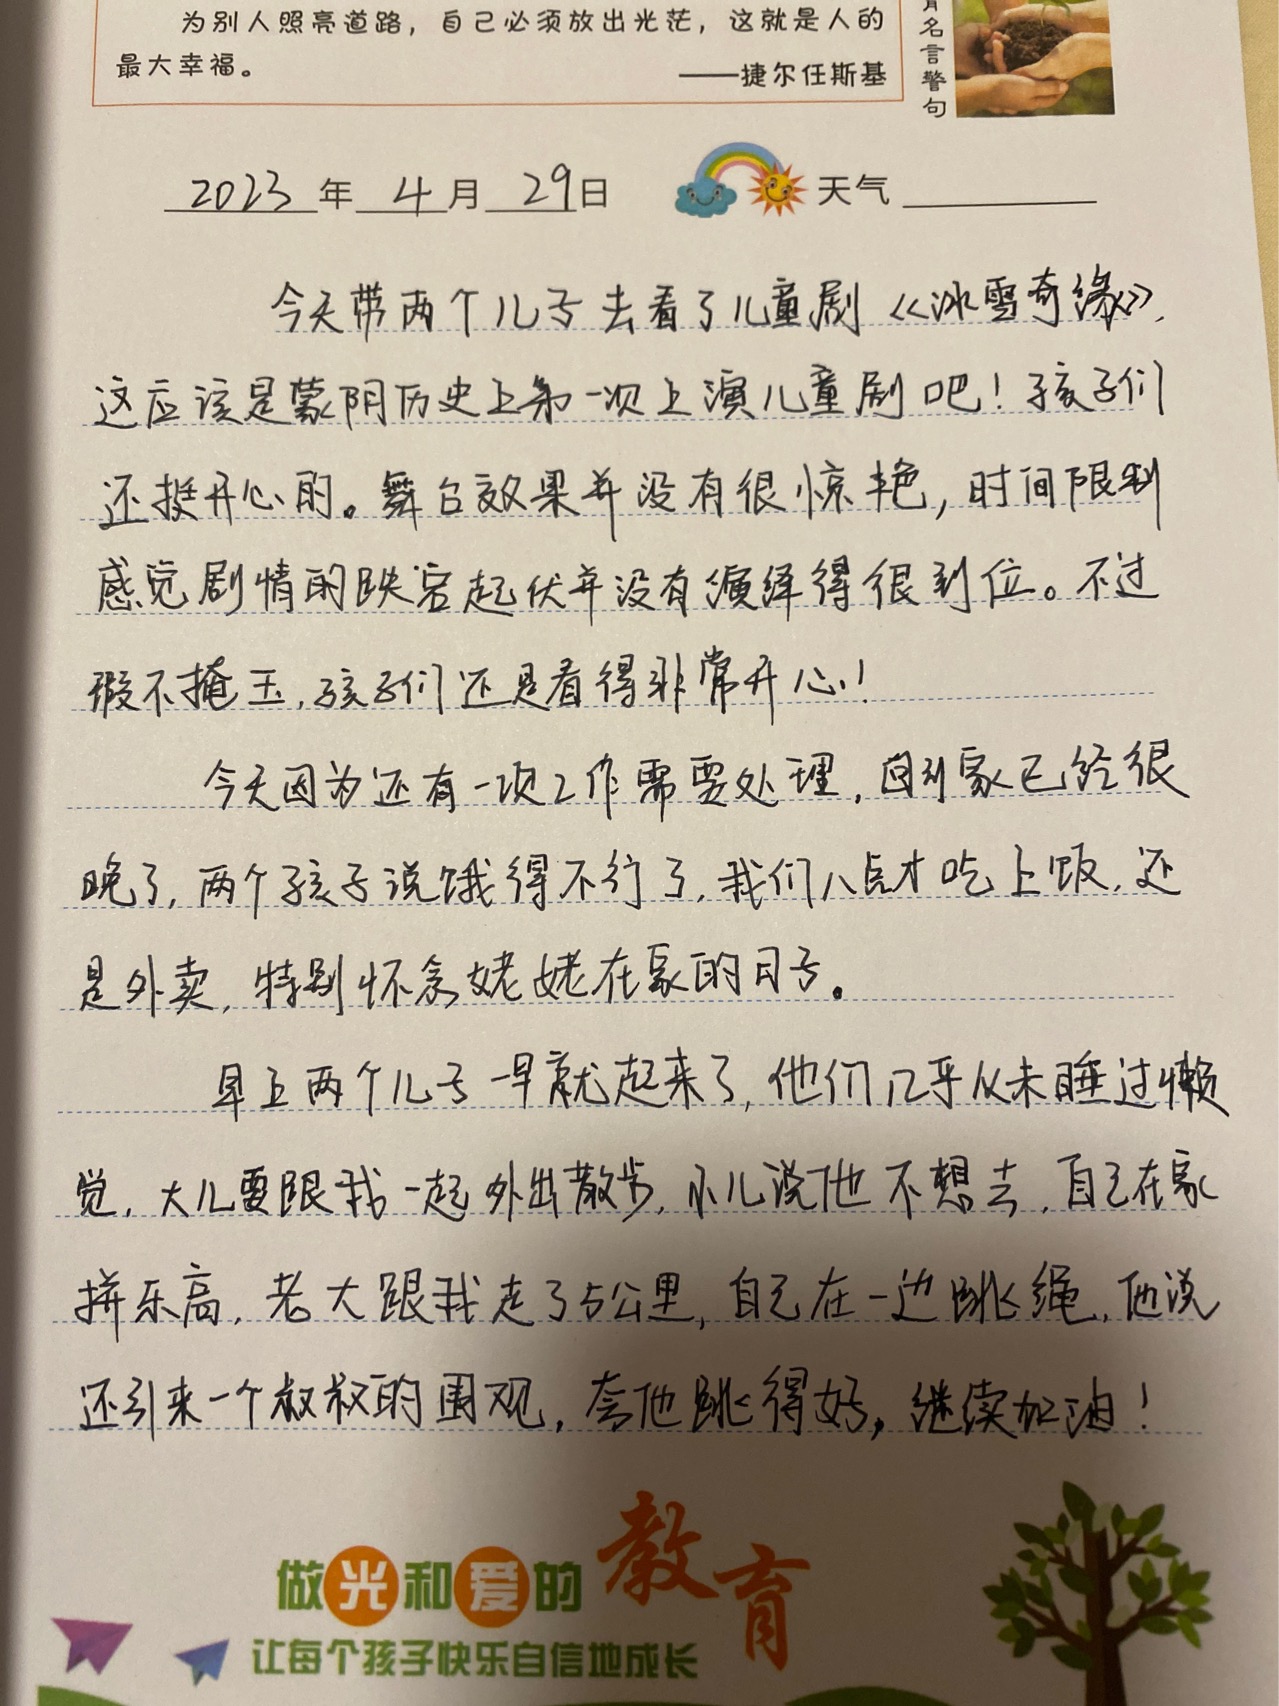 为别人照亮道路，自己必须放出光茫，这就是人的
最大幸福。
——捷尔任斯基
名言警句
2023年4月29日 天气
今天带两个儿子去看了儿童剧《冰雪奇缘》，
这应该是蒙阴历史上第一次上演儿童剧吧！孩子们
还挺开心的。舞台效果并没有很惊艳，时间限制
感觉剧情的跌宕起伏并没有演绎得很到位。不过
瑕不掩玉，孩子们还是看得非常开心！
今天因为还有一项工作需要处理，回到家已经很
晚了，两个孩子说饿得不行了，我们八点才吃上饭，还
是外卖，特别怀念姥姥在家的日子。
早上两个儿子一早就起来了，他们几乎从未睡过懒
觉，大儿要跟我一起外出散步，小儿说他不想去，自己在家
拼乐高，老大跟我走了5公里，自己在一边跳绳，他说
还引来一个叔叔的围观，夸他跳得好，继续加油！
做光和爱的教育
让每个孩子快乐自信地成长